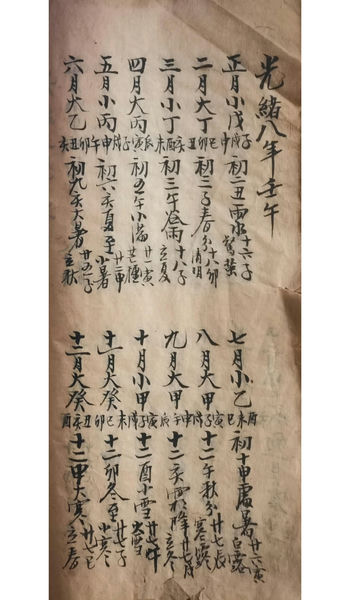 光緒八年壬午
正月小戊子戌申初二丑雨水十六子驚蟄
二月大丁巳卯丑初三子春分十八卯清明
三月小丁亥酉未初三午谷雨十八子立夏
四月大丙辰寅子初五午小滿廿一寅芒種
五月小丙戌申午初六亥夏至廿二申小暑
六月大乙卯丑亥初九大暑廿五子立秋
七月小乙酉未巳初十甲處暑廿六寅白露
八月大甲寅子戌十二午秋分廿七辰寒露
九月大甲申午辰十二亥霜降廿七立冬
十月小甲寅子戌十二酉小雪廿七大雪
十一月大癸未巳卯十二卯冬至廿七子小寒
十二月大癸丑亥酉十二甲大寒廿七巳立春